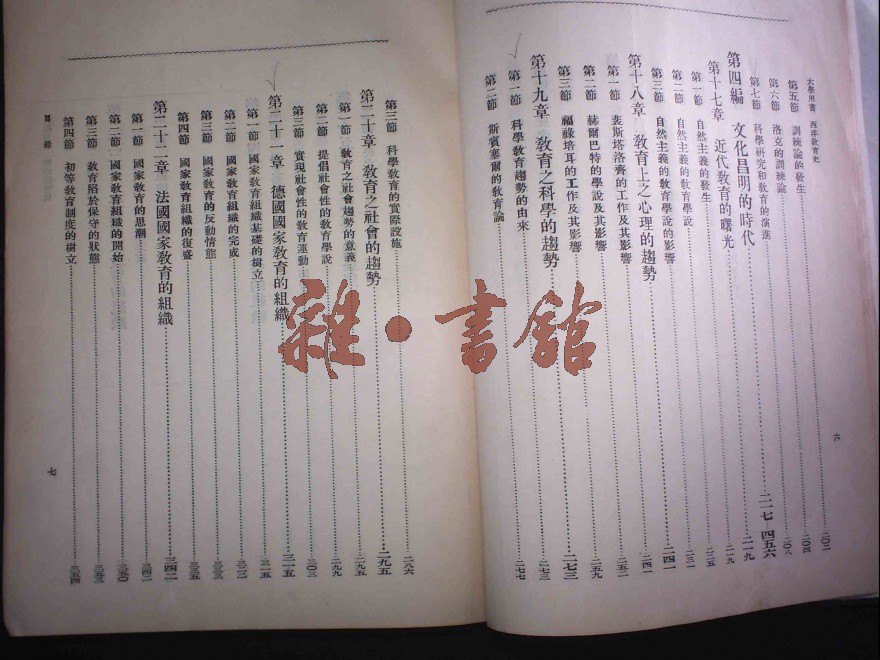 大學用書 西洋教育史
第五節 訓練論的發生 二〇二
第六節 洛克的訓練論 二〇四
第七節 科學研究和教育的演進 二〇八
第四編 文化昌明的時代 二一七—四五六
第十七章 近代教育的曙光 二一九
第一節 自然主義的發生 二一九
第二節 自然主義的教育學說 二二五
第三節 自然主義的教育學說的影響 二三一
第十八章 教育上之心理的趨勢 二四一
第一節 裴斯塔洛齊的工作及其影響 二四一
第二節 赫爾巴特的學說及其影響 二五二
第三節 福祿培耳的工作及其影響 二五九
第十九章 教育之科學的趨勢 二七三
第一節 科學教育趨勢的由來 二七三
第二節 斯賓塞爾的教育論 二七七
六
第三節 科學教育的實際設施 二八六
第二十章 教育之社會的趨勢 二九五
第一節 教育之社會趨勢的意義 二九五
第二節 提倡社會性的教育學說 二九九
第三節 實現社會性的教育運動 三〇三
第二十一章 德國國家教育的組織 三一五
第一節 國家教育組織基礎的樹立 三一五
第二節 國家教育組織的完成 三二二
第三節 國家教育的反動情態 三三三
第四節 國家教育組織的復盛 三三五
第二十二章 法國國家教育的組織 三四二
第一節 國家教育的思潮 三四二
第二節 國家教育組織的開始 三五〇
第三節 教育陷於保守的狀態 三五三
第四節 初等教育制度的樹立 三五四
目錄
七
雜·書館